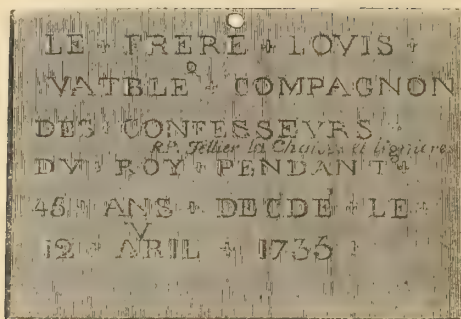 LE + FRERE + LOVIS +
VATBLE + COMPAGNON
DES + CONFESSEVRS +
R.P. Tellier la Chaise et lignieres
DV + ROY + PENDANT +
45 + ANS + DECDE + LE +
12 + AVRIL + 1735